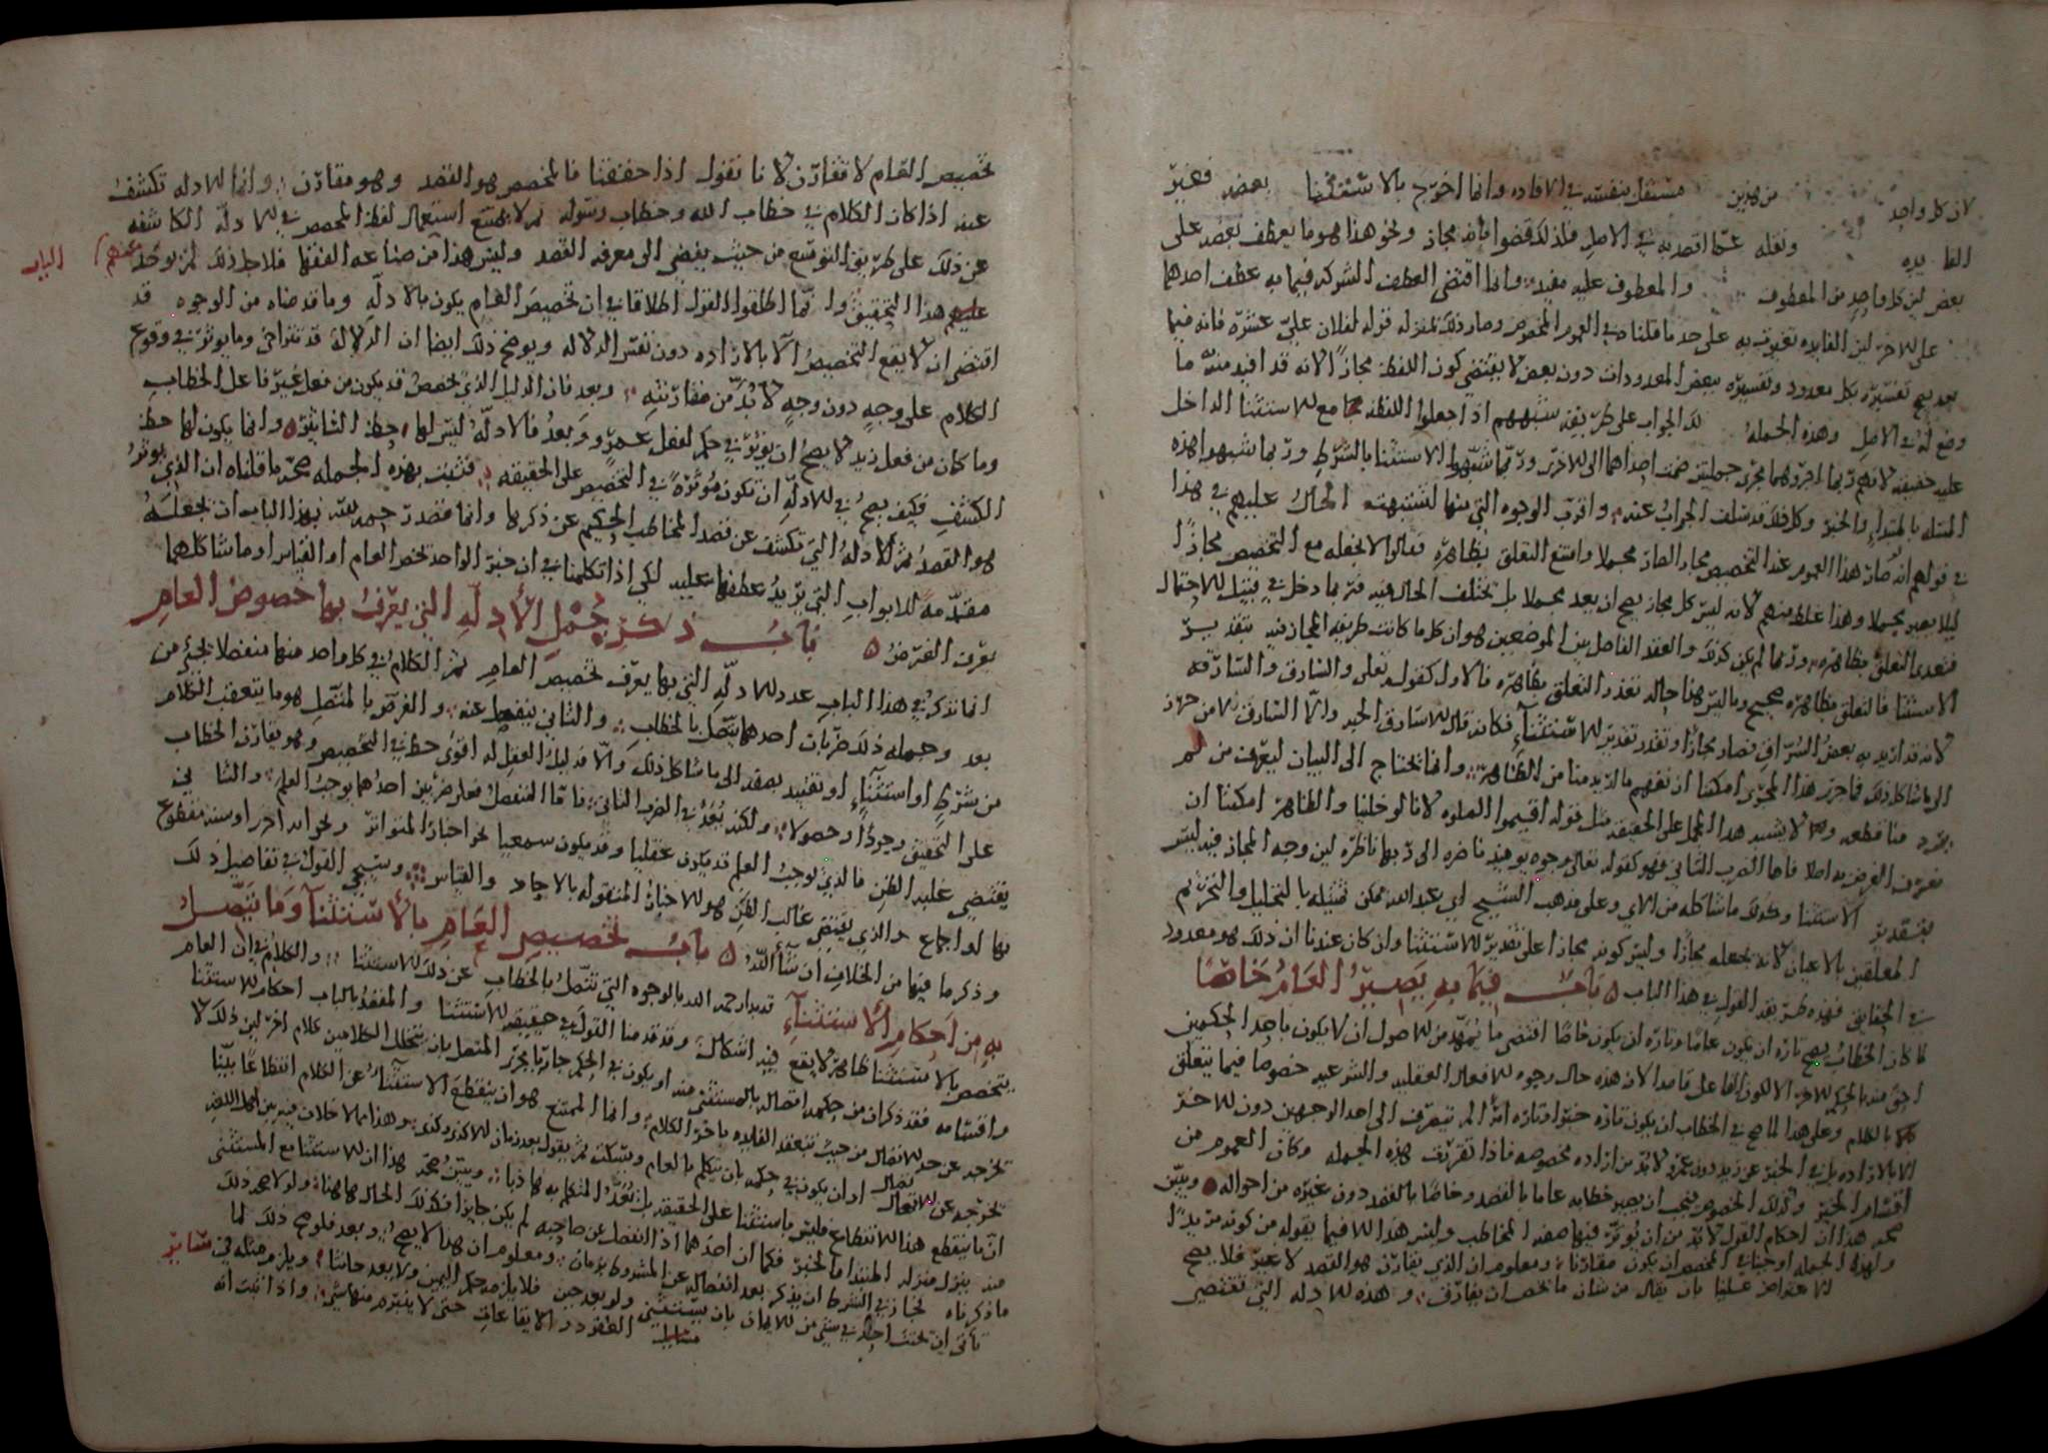 لان كل واحد من هذين مستقل بنفسه في الافاده وانما اخرج بالاستثنا بعضه فغير
الفايده ونقله عما قصد به في الاصل فلذلك قضوا بانه مجاز ونحو هذا هو ما يعطف بعضه على
بعض لان كل واحد من المعطوف والمعطوف عليه مفيد وانما اقتضى العطف الشركه فيما به عطف احدهما
على الاخر لان الفايده تغيرت به على حد ما قلناه في العموم المخصوص وصار ذلك بمنزله قوله لفلان علي عشره فانه فيما
بعد يصح تفسيره بكل معدود وتفسيره ببعض المعدودات دون بعض لا يقتضي كون اللفظه مجازا لانه قد افيد منه ما
وضع له في الاصل وهذه الجمله لك الجواب على طريقه شبههم اذا جعلوا اللفظه مع الاستثنا الداخل
عليه حقيقه لانهم ربما اجروهما مجرى جملتين ضمت احداهما الى الاخرى وربما شبهوا الاستثنا بالشرط وربما شبهوا هذه
المسله بالمبتدا والخبر وكل ذلك قد سلف الجواب عنه واقرب الوجوه التي منها اشتبهت الحال عليهم في هذا
في قولهم انه صار هذا العموم عند التخصيص مجازا لصار مجملا وامتنع التعلق بظاهره فقالوا لا نجعله مع التخصيص مجازا
ليلا يصير مجملا وهذا غلط منهم لانه ليس كل مجاز يصح ان يعد مجملا بل تختلف الحال فيه فربما دخل في قبيل الاحتمال
فبعد التعلق بظاهره وربما لم يكن كذلك والعقد الفاصل بين الموضعين هو ان كل ما كانت طريقه المجاز فيه بتقدير
الاستثنا فالتعلق بظاهره صحيح وما ليس هذا حاله تعذر التعلق بظاهره فالاول كقوله تعالى والسارق والسارقه
لانه قد اريد به بعض السراق فصار مجازا وتقدر تقدير الاستثناء فكانه قال السارق الحد والا السارق لا من حرز
الى ما شاكل ذلك فاجري هذا المجرى امكننا ان نفهم ما اريد منا من الظاهر وانما نحتاج الى البيان ليعرف من لم
يرد منا قطعه وهذا لا يشبه هذا المحل على الحقيقه مثل قوله اقيموا الصلوه لانا لو خلينا والظاهر امكننا ان
نعرف الغرض به اصلا فاما الضرب الثاني فهو كقوله تعالى وجوه يومئذ ناضره الى ربها ناظره لان وجه المجاز فيه ليس
بتقدير الاستثنا وكذلك ما شاكله من الاي وعلى مذهب الشيخ ابي عبد الله يمكن تمثيله بالتحليل والتحريم
المعلقين بالاعيان لانه يجعله مجازا وليس كونه مجازا على تقدير الاستثنا وان كان عندنا ان ذلك هو معدود
في الحقايق فهذه طريقه القول في هذا الباب ه باب فيما به يصير العام خاصا
لما كان الخطاب يصح تاره ان يكون عاما وتاره ان يكون خاصا اقتضى ما تمهد من الاصول ان لا يكون باحد الحكمين
احق منه بالحكم الاخر الا لكون الفاعل قاصدا لان هذه حال وجوه الافعال العقليه والشرعيه خصوصا فيما يتعلق
بالكلام وعلى هذا لما صح في الخطاب ان يكون تاره خبرا وتاره امرا لم ينصرف الى احد الوجهين دون الاخر
الا بالاراده بل في الخبر عن زيد دون عمرو لا بد من اراده مخصوصه فاذا تقررت هذه الجمله وكان العموم من
اقسام الخبر وكذلك الخصوص فيجب ان يصير خطابه عاما بالقصد وخاصا بالقصد دون غيره من احواله ه ويبين
صحه هذا ان احكام القول لا بد من ان يؤثر فيها صفه المخاطب وليس هذا الا فيما يقوله من كونه مريدا
ولهذه الجمله اوجبنا في المخصص ان يكون مقارنا ومعلوم ان الذي يقارن هو القصد لا غير فلا يصح
الاعتراض علينا بان يقال من شان ما يخص ان يقارن وهذه الادله التي تقتضي
تخصيص العام لا تقارن لانا نقول اذا حققنا فالمخصص هو القصد وهو مقارن وانما الادله تكشف
عنه اذا كان الكلام في خطاب الله وخطاب رسوله ثم لا يمتنع استعمال لفظ المخصص في الادله الكاشفه
عن ذلك على طريق التوسع من حيث يفضي الى معرفه القصد وليس هذا من صناعه الفقها فلاجل ذلك لم يوجد منهم) الباب
هذا التحقيق وانما اطلقوا القول اطلاقا في ان تخصيص العام يكون بالادله وما قدمناه من الوجوه قد
اقتضى ان لا يقع التخصيص الا بالاراده دون نفس الدلاله ويوضح ذلك ايضا ان الدلاله قد تتراخى وما يؤثر في وقوع
الكلام على وجه دون وجه لا بد من مقارنته وبعد فان الدليل الذي يخصص قد يكون من فعل غير فاعل الخطاب
وما كان من فعل زيد لا يصح ان يؤثر في حكم لفعل عمرو وبعد فالادله ليس لها حظ التاثير ه وانما يكون لها حظ
الكشف فكيف يصح في الادله ان تكون مؤثره في التخصيص على الحقيقه فثبت بهذه الجمله صحه ما قلناه ان الذي يؤثر
هو القصد ثم الادله التي تكشف عن قصد المخاطب الحكيم عن ذكرها وانما قصدت بحمد الله بهذا الباب ان نجعله
مقدمه للابواب التي نريد عطفها عليه لكي اذا تكلمنا في ان خبر الواحد يخص العام او القياس او ما شاكلهما
يعرف الغرض ه باب ذكر جمل الأدله التي يعرف بها خصوص العام
انما نذكر في هذا الباب عدد الادله التي بها يعرف تخصيص العام ثم الكلام في كل واحد منها منفصلا يجيء من
بعد وجمله ذلك ضربان احدهما يتصل بالخطاب والثاني ينفصل عنه والغرض بالمتصل هو ما يتعقب الكلام
من شرط او استثناء او تقييد بصفه الى ما شاكل ذلك والا فدليل العقل له اقوى حظ في التخصيص وهو يقارن الخطاب
على التحقيق وجودا وحصولا ولكنه يعد في الضرب الثاني فاما المنفصل فعلى ضربين احدهما يوجب العلم والثاني
يقتضي غلبه الظن فالذي يوجب العلم قد يكون عقليا وقد يكون سمعيا نحو اخبار المتواتر ونحو ايه اخرى او سنه مقطوع
بها او اجماع والذي يقتضي غالب الظن هو الاخبار المنقوله بالاحاد والقياس وسيجي القول في تفاصيل ذلك
وذكر ما فيها من الخلاف ان شأ الله ه باب تخصيص العام بالأستثنآ وما يتصل
به من احكام الأستثنآء قد بدا رحمه الله بالوجوه التي تتصل بالخطاب عن ذلك الاستثنا والكلام في ان العام
يتخصص بالاستثنا ظاهر لا يقع فيه اشكال وقد قدمنا القول في حقيقه الاستثنا والمقصد بالباب احكام الاستثنا
واقسامه فقد ذكر ان من حكمه اتصاله بالمستثنى منه او يكون في الحكم جاريا مجرى المتصل بان يتخلل الكلامين كلام اخر لان ذلك لا
يخرجه عن حد الاتصال من حيث تتعقد الفايده باخر الكلام وانما الممتنع هو ان ينقطع الاستثنا عن الكلام انقطاعا بينا
يخرجه عن الاتصال او ان يكون في حكمه بان يتكلم بالعام ويسكت ثم يقول بعد زمان الا كذا وكذا وهذا مما لا خلاف فيه بين اهل اللغه
ان ما ينقطع هذا الانقطاع فليس باستثنا على الحقيقه بل يعد المتكلم به هاذيا ويبين صحه هذا ان الاستثنا مع المستثنى
منه ينزل منزله المبتدا والخبر فكما ان احدهما اذا انفصل عن صاحبه لم يكن جايزا فكذلك الحال هاهنا ولولا صحه ذلك
ما ذكرناه لجاز في الشرط ان يذكر بعد انفصاله عن المشروط بزمان ومعلوم ان هذا لا يصح وبعد فلو صح ذلك لما
تاتى ان يحنث احد في شي من الايمان بان يستثني ولو بعد حين فلا يلزمه حكم اليمين ولا يعد حانثا ويلزم مثله في سائر
العقود والايقاعات حتى لا ينبرم منها شي واذا ثبت انه